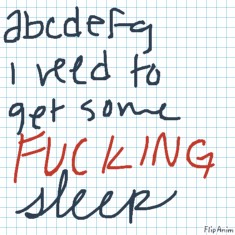 abcdefg
i need to
get some
FUCKING
sleep
FlipAnim